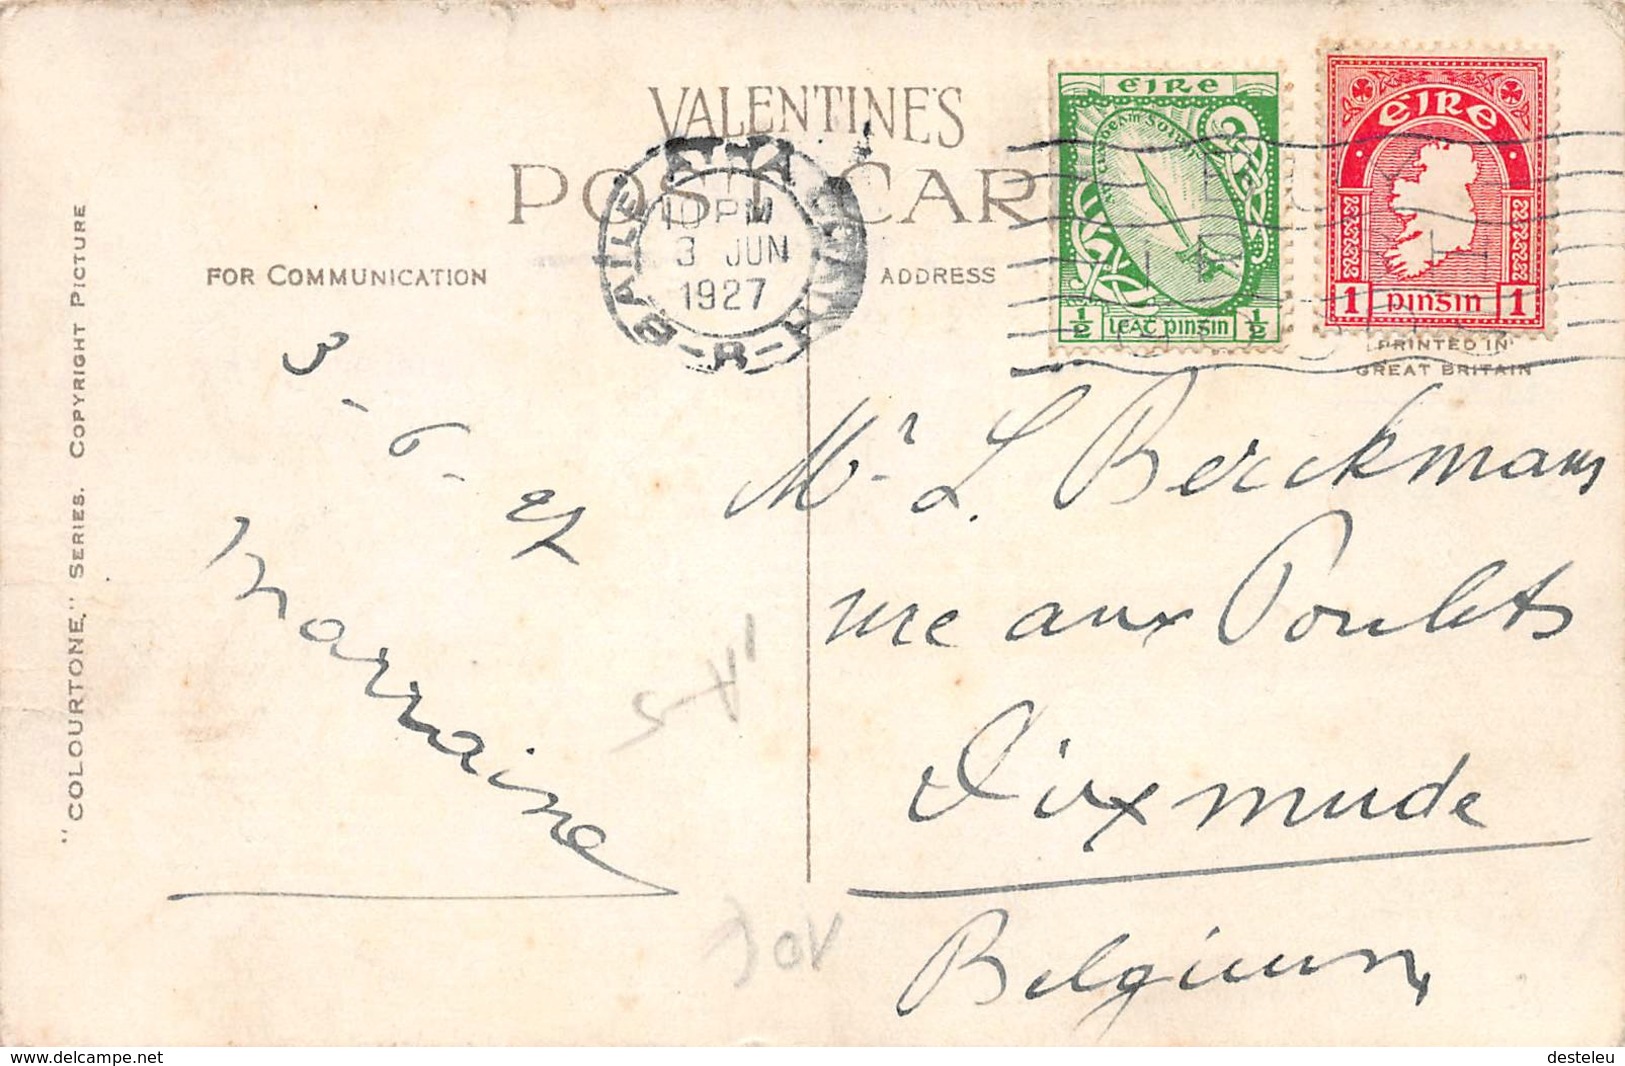 VALENTINE'S
POST CAR
FOR COMMUNICATION
ADDRESS
BAILE ATHA CLIATH
10 PM
3 JUN
1927
EIRE
1/2 LEAT PINSIN 1/2
EIRE
1 PINSIN 1
PRINTED IN
GREAT BRITAIN
"COLOURTONE." SERIES. COPYRIGHT PICTURE
3-6-27
Marraine
Mr L. Berckmans
rue aux Poulets
Dixmude
Belgium
www.delcampe.net
desteleu